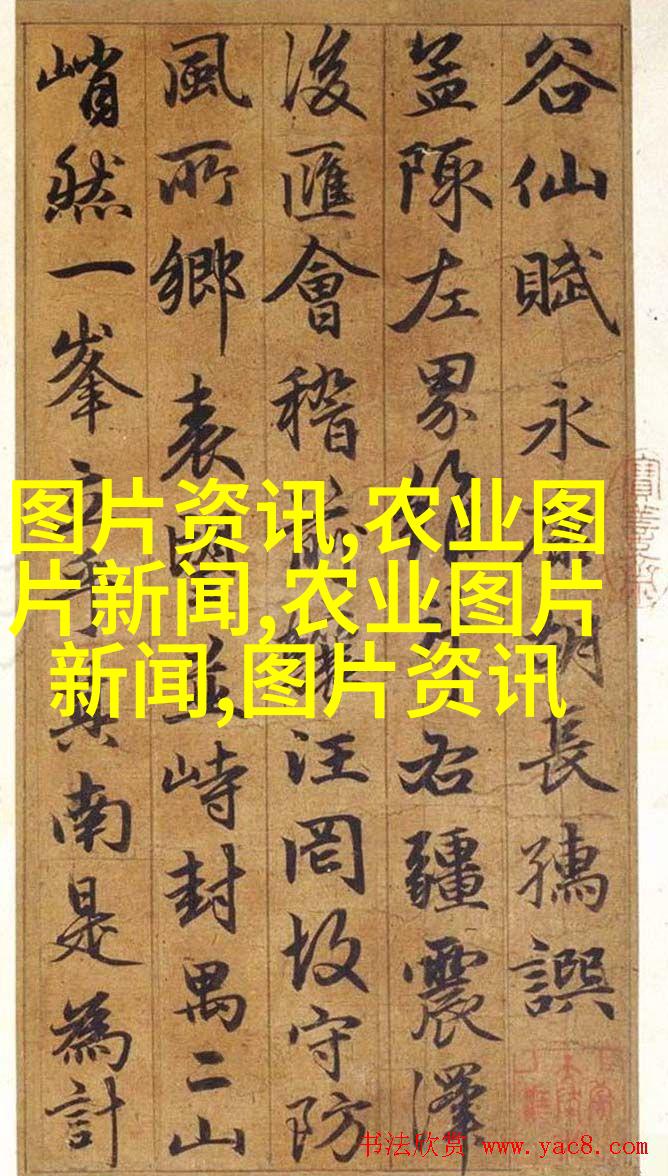 谷仙賦 永 胡長孺譔
盖陳左界 右疆震澤
後匯會稽 汪罔故守防
風所鄉 表 峙封禺二山
峭然一峯立 其南是為計
图片资讯,农业图
片新闻,农业图片
新闻,图片资讯
书法欣赏 www.yac8.com